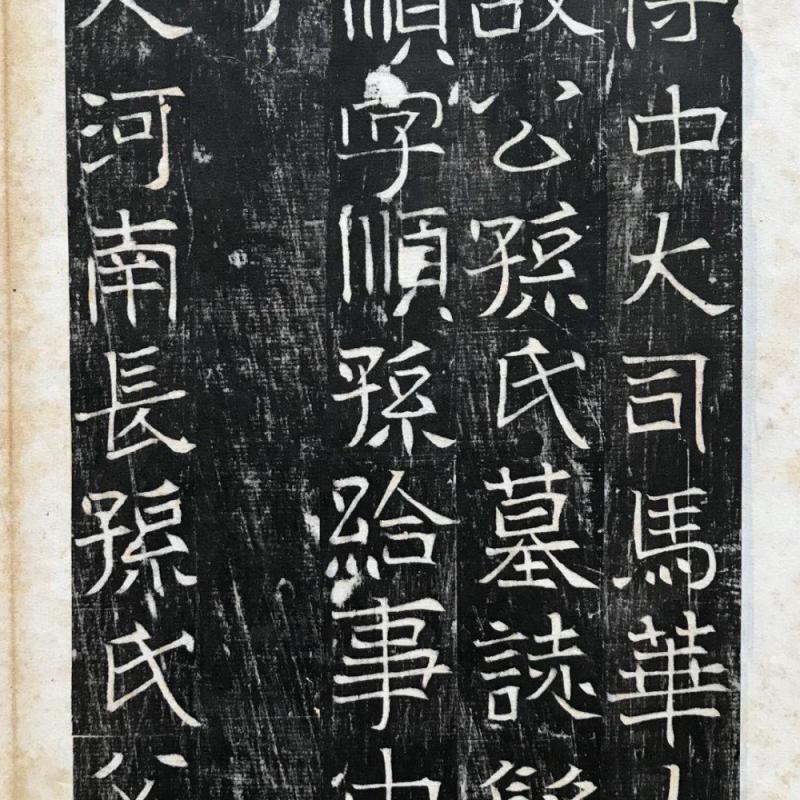 中大司馬華
故公孫氏墓誌
順字順孫給事中
河南長孫氏父